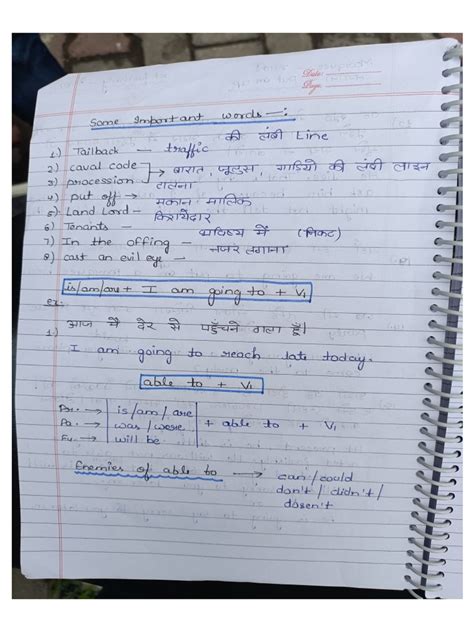 Date:
Page:
Some Important words —:
की लंबी Line
1) Tailback — traffic
2) caval code → बारात, जूलुस, गाडियो की लंबी लाइन
3) procession
4) put off → टालना
5) Land Lord — मकान मालिक
6) Tenants — किरायेदार
7) In the offing — भविष्य में (निकट)
8) cast an evil eye — नजर लगाना
is/am/are + I am going to + V1
ex:
1.) आज मै देर से पहुँचने वाला हूँ।
I am going to reach late today.
able to + V1
Pre. → is/am/are
Pa. → was/were + able to + V1
Fu. → will be
Enemies of able to → can/could
don't/didn't/
dosen't